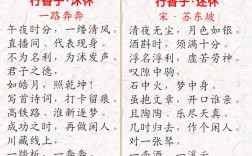 行香子·沐休
一路奔奔
午夜时分，一缕清风。
直播间、代表现身。
不为名利、为沐发声
君子之德，
如皓月，照乾坤！
写首诗词，打卡留痕。
高铁路、淮新逐梦。
成功之时，再做闲人
川藏线上、
行香子·述怀
宋·苏东坡
清夜无尘，月色如银。
酒斟时、须满十分。
浮名浮利，虚苦劳神。
叹隙中驹，
石中火，梦中身。
虽抱文章，开口谁亲。
且陶陶、乐尽天真。
几时归去，作个闲人。
对一张琴，